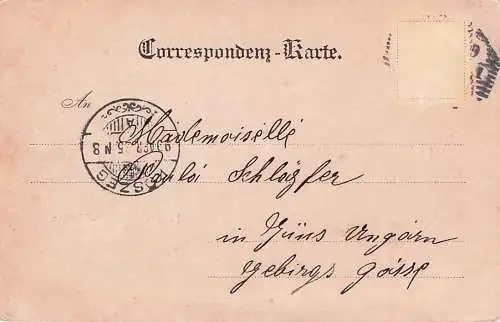 Correspondenz-Karte.
An
Mademoiselle
Schläfer
in Güns Ungarn
Gebirgs Gasse
KŐSZEG